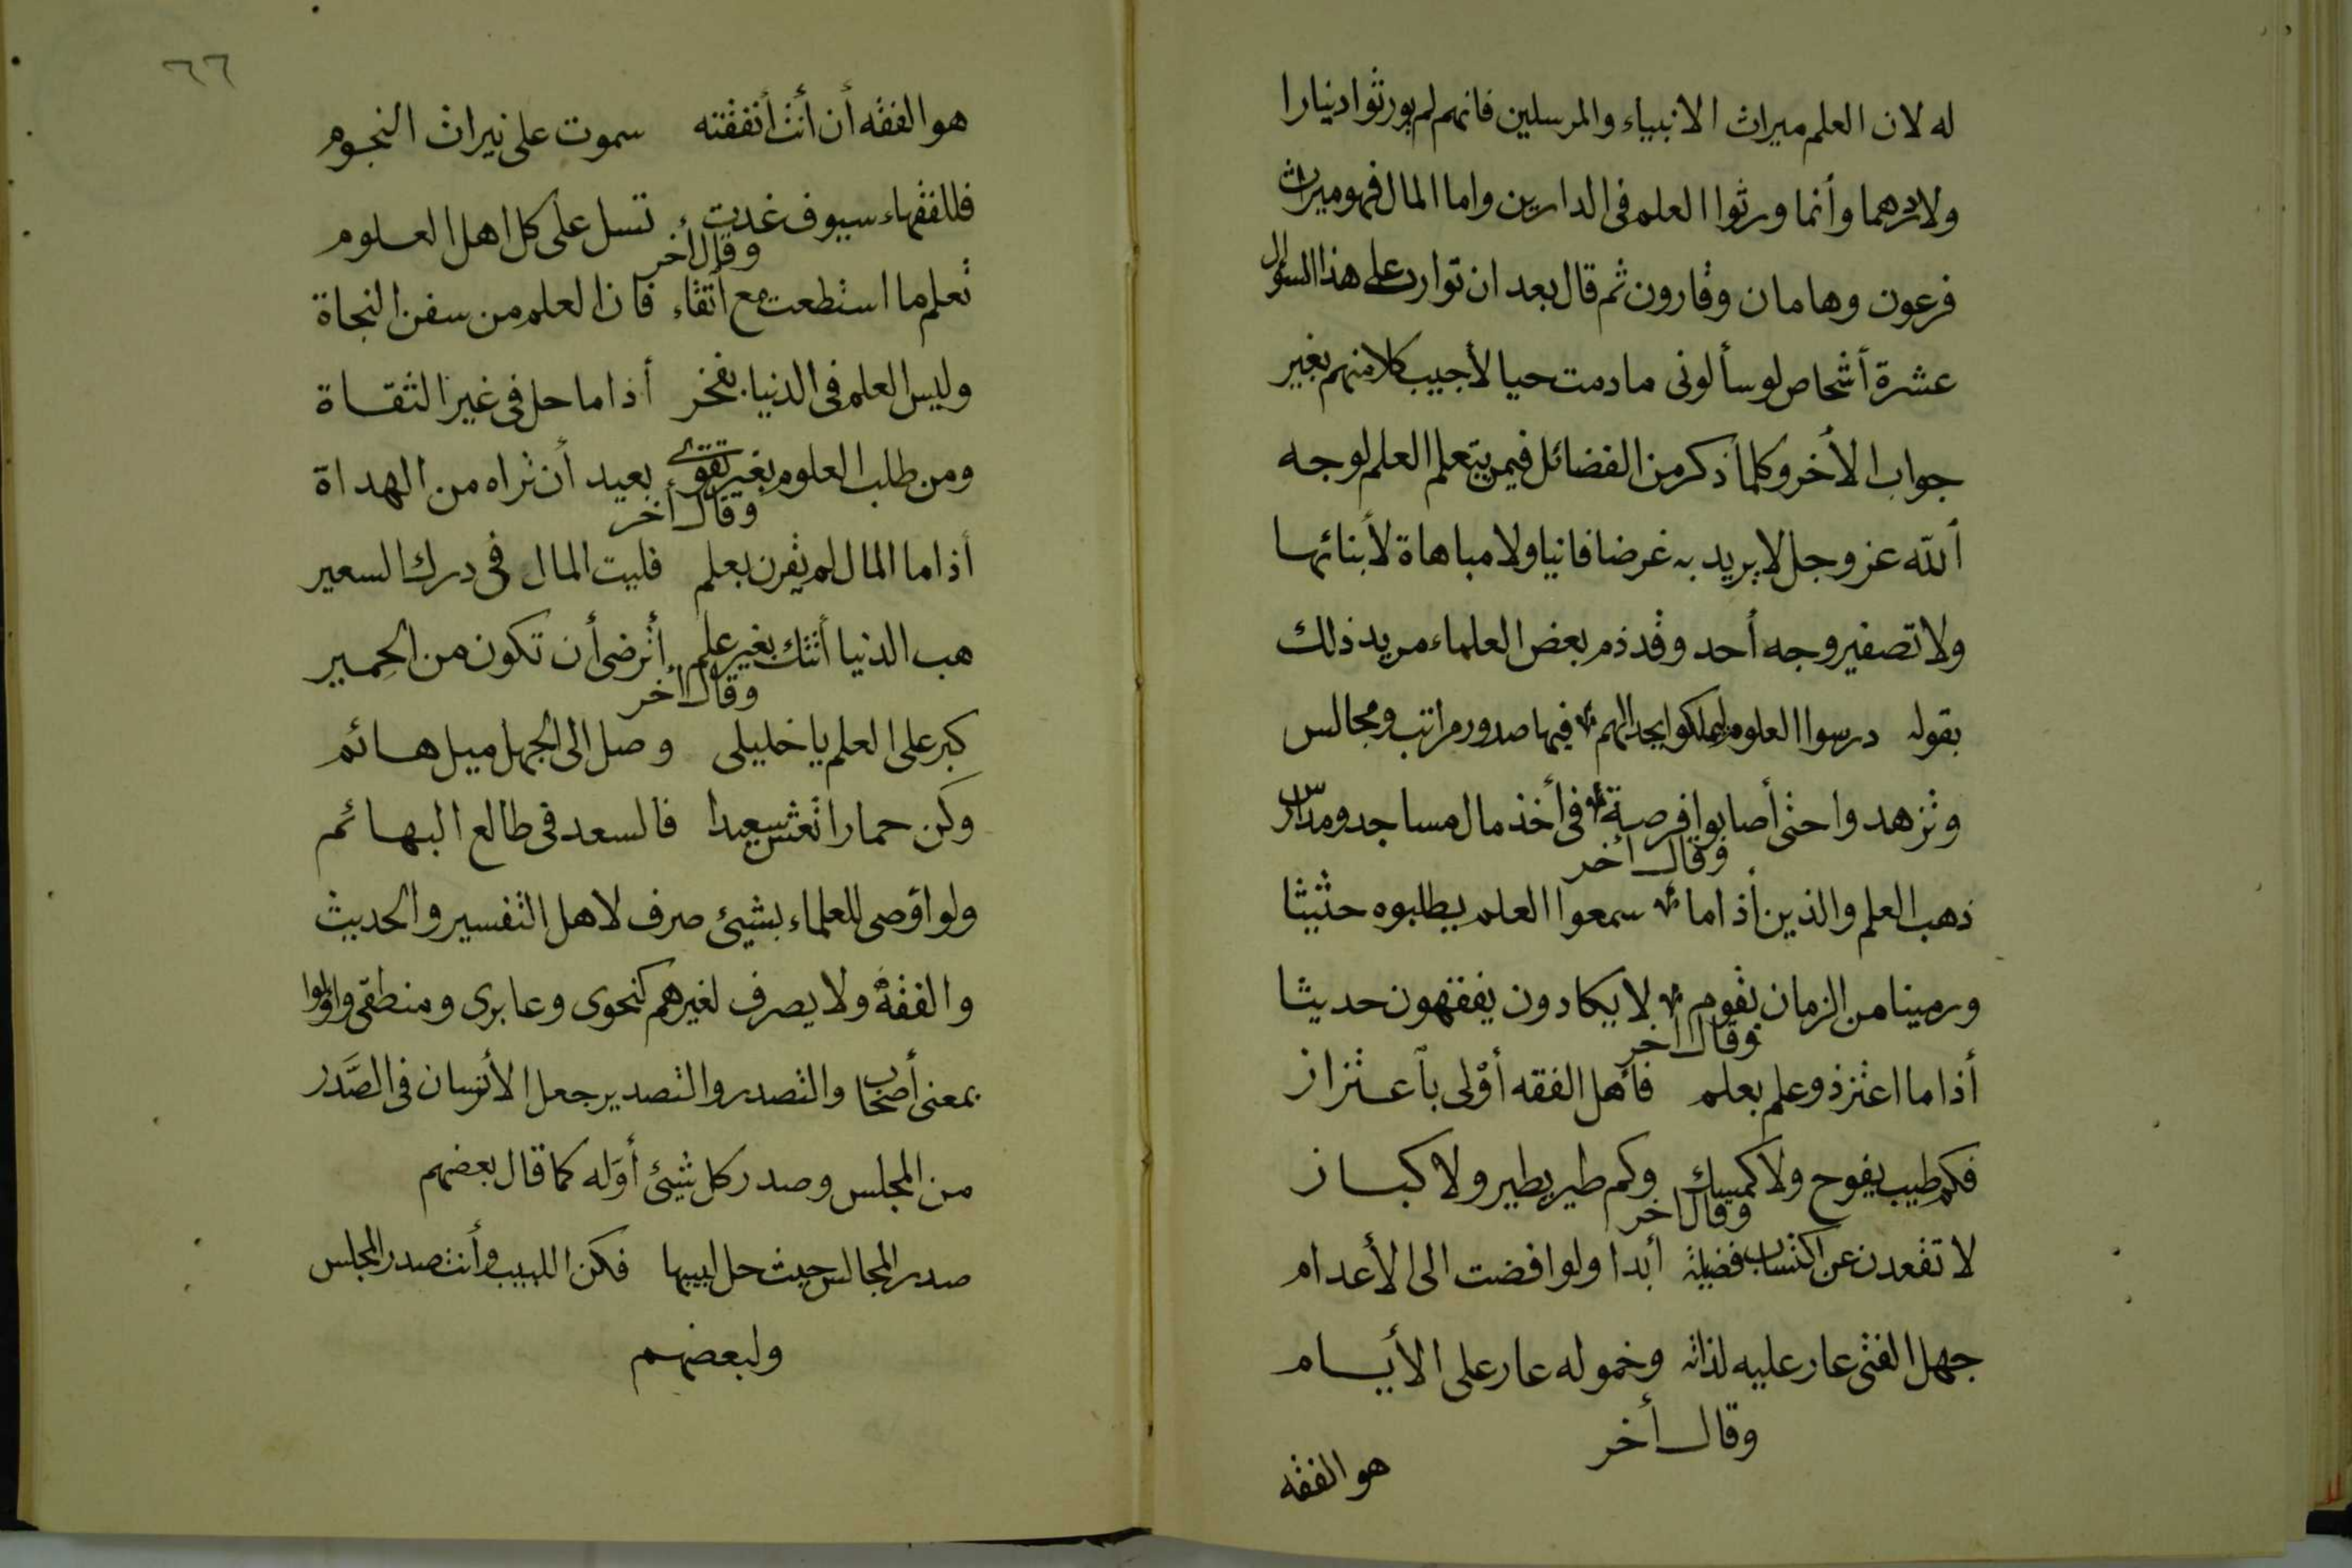 له لان العلم ميراث الانبياء والمرسلين فانهم لم يورثوا دنيارا
ولا درهما وأنما ورثوا العلم فى الدارين واما المال فهو ميراث
فرعون وهامان وقارون ثم قال بعد ان توارد على هذا السؤال
عشرة أشخاص لو سألونى مادمت حيا لأجيب كلا منهم بغير
جواب الأخر وكلما ذكر من الفضائل فيمن يتعلم العلم لوجه
ألله عز وجل لا يريد به غرضا فانيا ولا مباهاة لأبنائها
ولا تصفير وجه أحد وقد ذم بعض العلماء مريد ذلك
بقوله درسوا العلوم ليملكوا بجدالهم فيها صدور مراتب ومجالس
وتزهدوا حتى أصابوا فرصة فى أخذ مال مساجد ومدارس
وقال أخر
ذهب العلم والذين أذاما سمعوا العلم يطلبوه حثيثا
ورمينا من الزمان بقوم لا يكادون يفقهون حديثا
وقال أخر
أذا ما اعتز ذو علم بعلم فأهل الفقه أولى بأعتزاز
فكم طيب يفوح ولا كمسك وكم طير يطير ولا كباز
وقال أخر
لا تقعدن عن اكتساب فضيلة أبدا ولو افضت الى الأعدام
جهل الفتى عار عليه لذاته وخموله عار على الأيام
وقال أخر
هو الفقه
٦٦
هو الفقه أن أنت أتفقته سموت على نيرات النجوم
فللفقهاء سيوف غدت تسل على كل اهل العلوم
وقال أخر
تعلم ما استطعت مع أتقاء فان العلم من سفن النجاة
وليس العلم فى الدنيا بفخر أذا ما حل فى غير الثقاة
ومن طلب العلوم بغير تقوى بعيد أن تراه من الهداة
وقال أخر
أذا ما المال لم يقرن بعلم فليت المال فى درك السعير
هب الدنيا أتتك بغير علم أترضى أن تكون من الحمير
وقال أخر
كبر على العلم يا خليلى وصل الى الجهل ميل هائم
وكن حمارا تعش سعيدا فالسعد فى طالع البهائم
ولو اوصى للعلماء بشيئ صرف لاهل التفسير والحديث
والفقه ولا يصرف لغيرهم كنحوى وعابرى ومنطقى واولوا
بمعنى أصحاب والتصدر والتصدير جعل الأنسان فى الصَّدر
من المجلس وصدر كل شيئ أوله كما قال بعضهم
صدر المجالس حيث حل لبيبها فكن اللبيب وأنت صدر المجلس
ولبعضهم